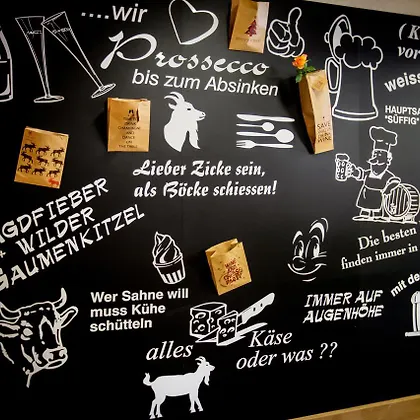 ....wir
Prossecco
bis zum Absinken
Lieber Zicke sein,
als Böcke schiessen!
AGDFIEBER
+ WILDER
GAUMENKITZEL
Wer Sahne will
muss Kühe
schütteln
alles Käse
oder was ??
IMMER AUF
AUGENHÖHE
Die besten
finden immer in
mit de
(K
vor
weiss
HAUPTSA
"SÜFFIG"
SAVE